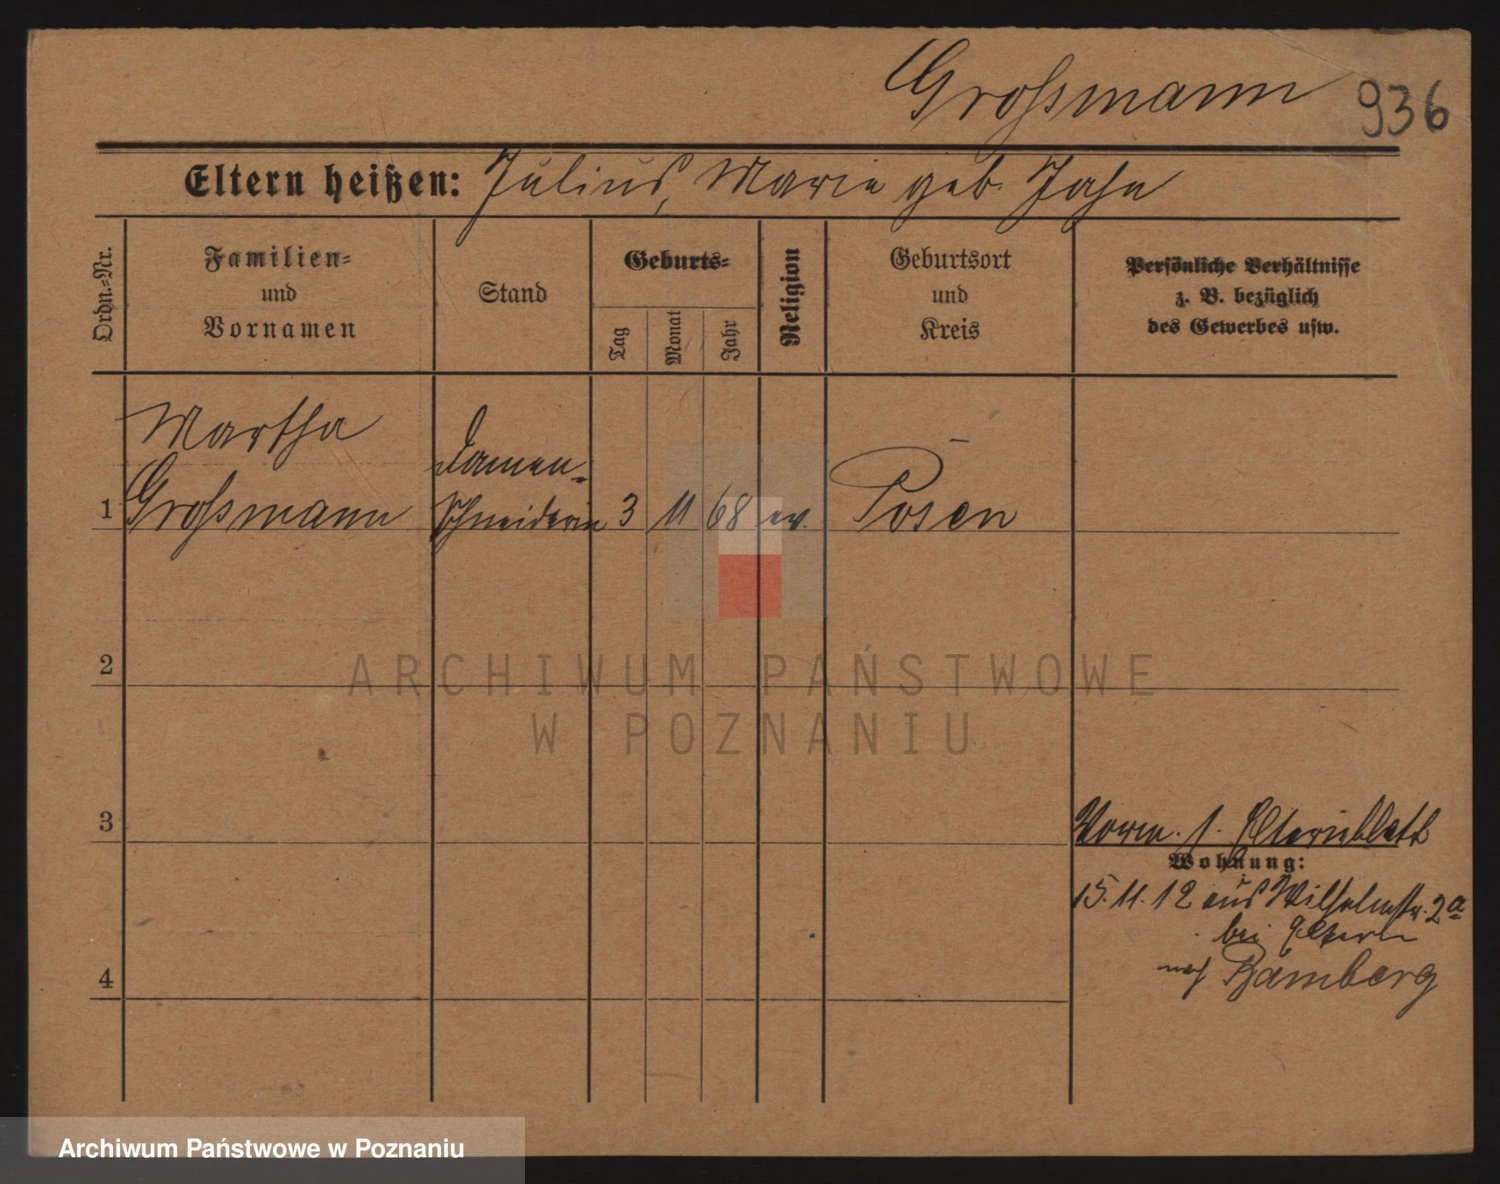 Großmann 936
Eltern heißen: Julius, Marie geb. Jahn
Ordn.-Nr.
Familien-
und
Vornamen
Stand
Geburts-
Tag
Monat
Jahr
Religion
Geburtsort
und
Kreis
Persönliche Verhältnisse
z. B. bezüglich
des Gewerbes usw.
Martha
Großmann
Damen-
schneiderin
1
3 11 68 ev. Posen
2
3
4
Vorm. s. Elternblatt
Wohnung:
15.11.12 aus Wilhelmstr. 2a
bei Eltern
nach Bamberg
ARCHIWUM PAŃSTWOWE
W POZNANIU
Archiwum Państwowe w Poznaniu